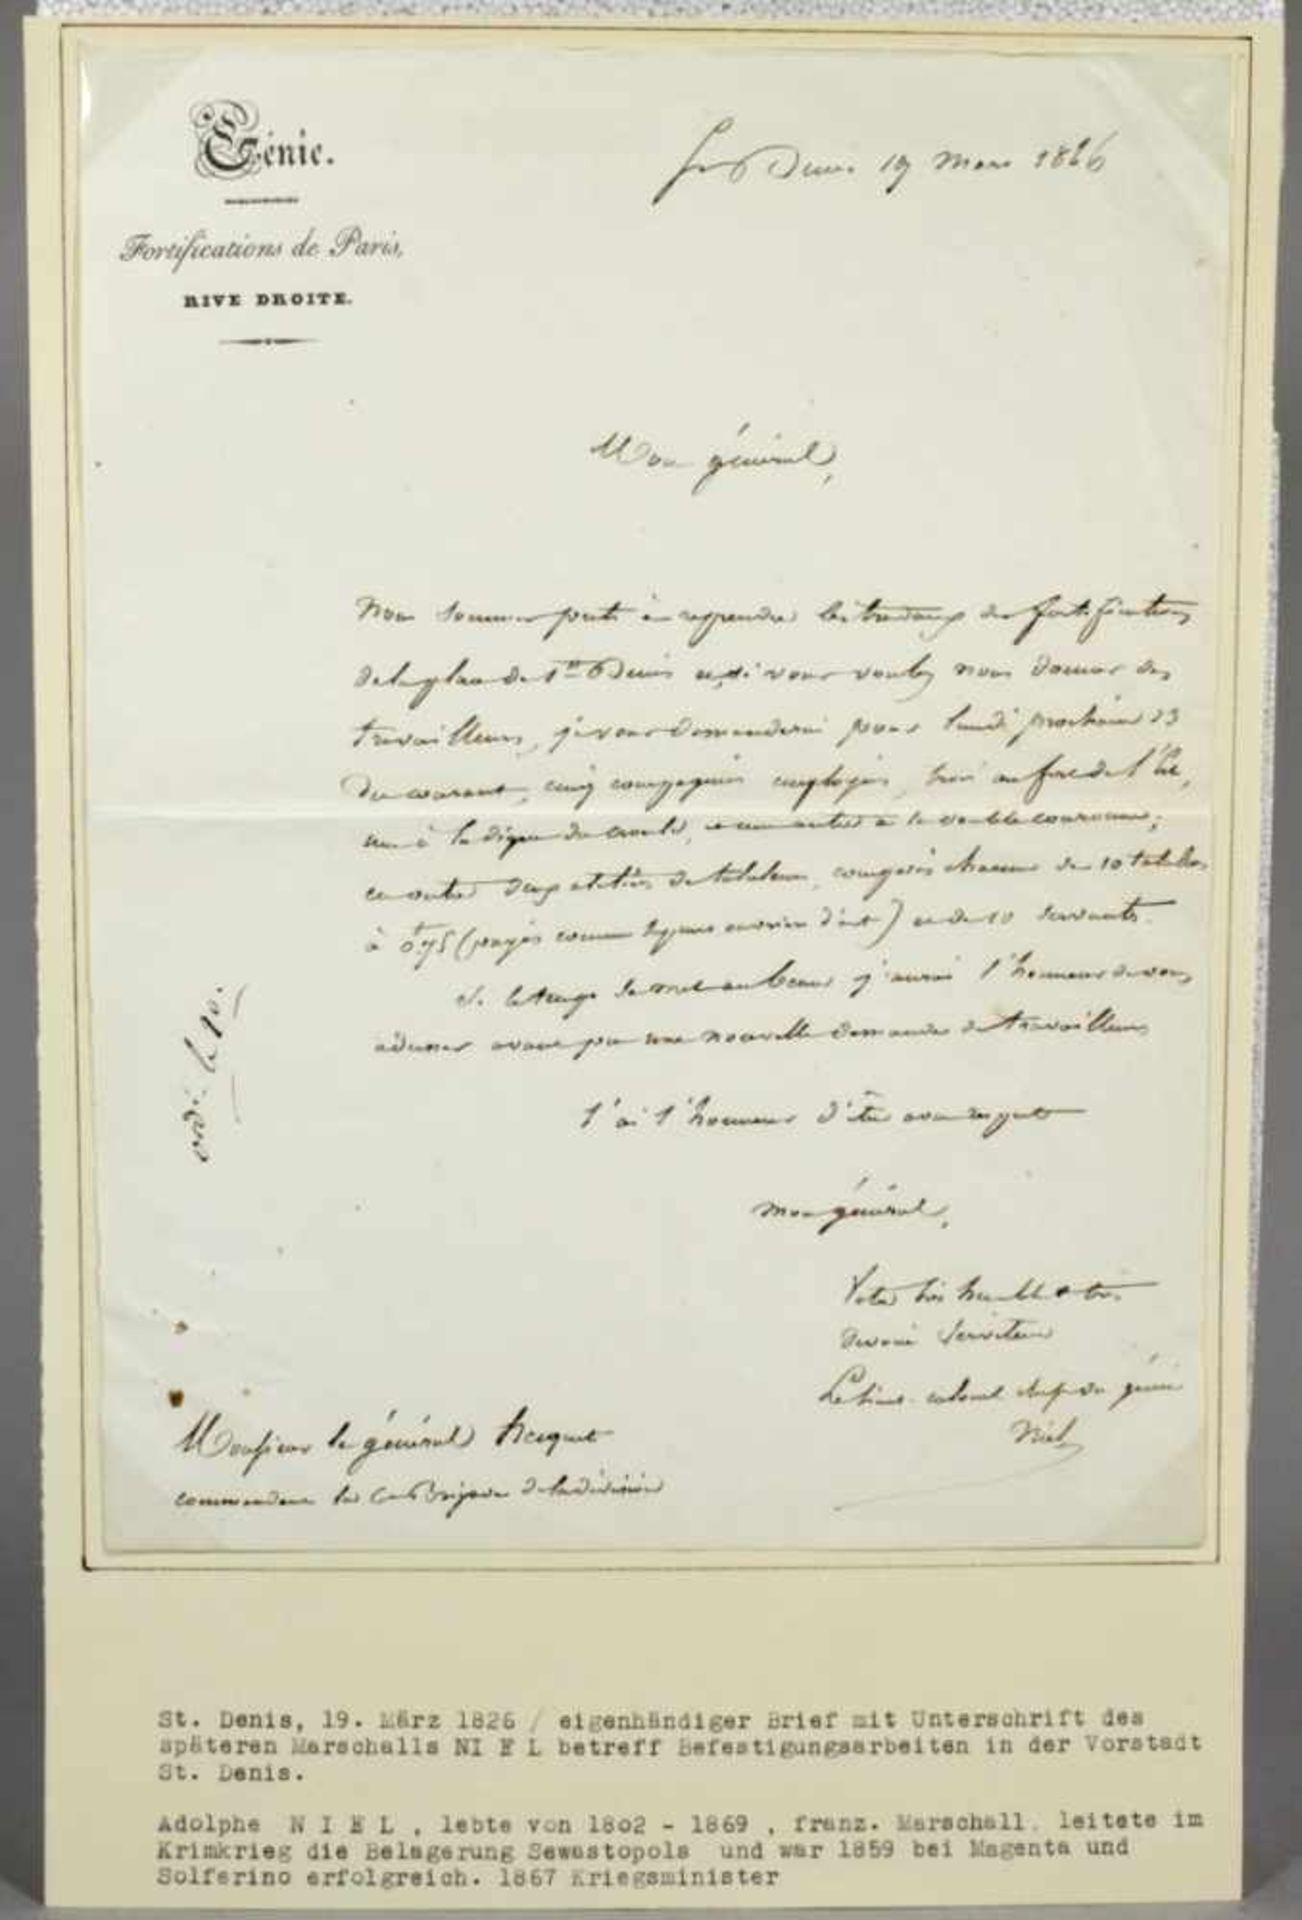 Génie.
Fortifications de Paris,
RIVE DROITE.
St Denis 19 Mars 1846
Mon général,
Nous sommes prêts à reprendre les travaux de fortifications
de la place de St Denis et si vous voulez nous donner des
travailleurs, je vous demanderai pour lundi prochain 23
du courant, cinq compagnies employées, trois au fort de l'Est,
une à la digue du crould, et une autre à la double couronne;
en outre deux ateliers de , composés chacun de 10
à 0f.75 (payés comme ouvriers d'art) et de 10 servants.
Si le temps se met au beau j'aurai l'honneur de vous
adresser avant peu une nouvelle demande de travailleurs
J'ai l'honneur d'être avec respect
mon général,
Votre très humble et très
dévoué serviteur
Le lieut. colonel chef du génie
Niel
ordre le 20.
Monsieur le général hecquet
commandant la brigade de la division
St. Denis, 19. März 1826 / eigenhändiger Brief mit Unterschrift des
späteren Marschalls NI E L betreff Befestigungsarbeiten in der Vorstadt
St. Denis.
Adolphe N I E L , lebte von 18o2 - 1869 , franz. Marschall, leitete im
Krimkrieg die Belagerung Sewastopols und war 1859 bei Magenta und
Solferino erfolgreich. 1867 Kriegsminister